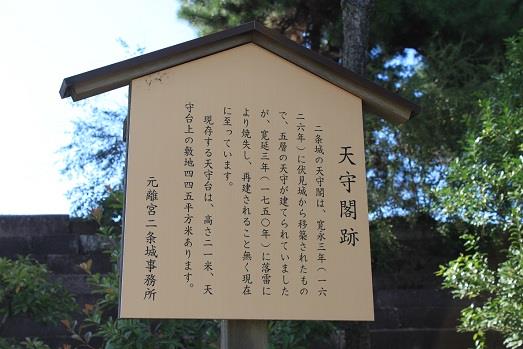 天守閣跡
二条城の天守閣は、寛永三年（一六
二六年）に伏見城から移築されたもの
で、五層の天守が建てられていました
が、寛延三年（一七五〇年）に落雷に
より焼失し、再建されること無く現在
に至っています。
現存する天守台は、高さ二一米、天
守台上の敷地四四五平方米あります。
元離宮二条城事務所